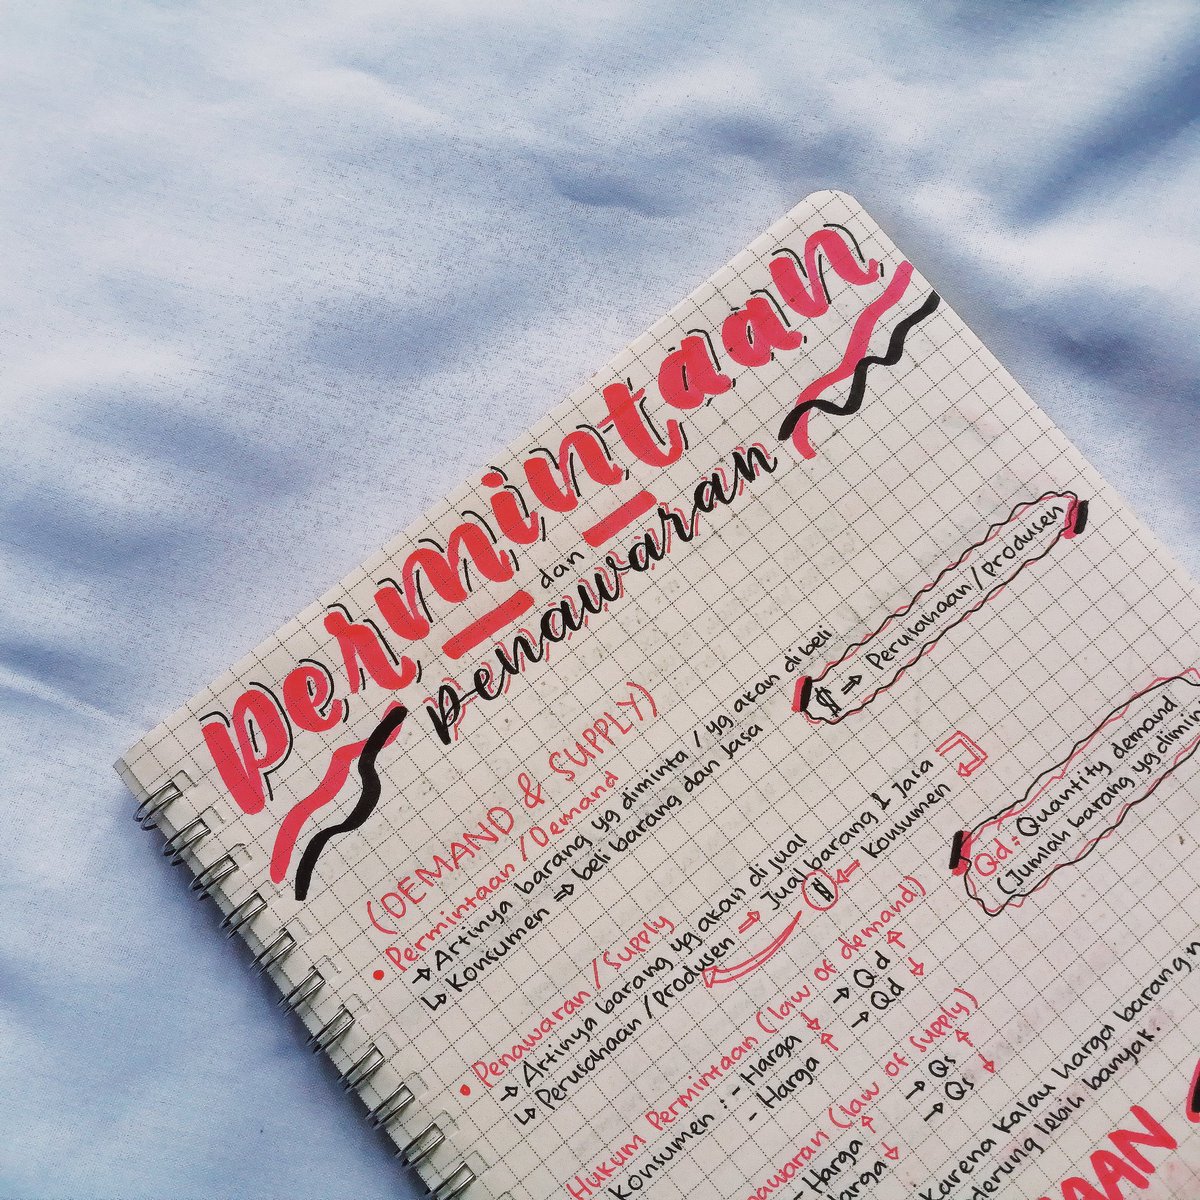 permintaan
dan
penawaran
(DEMAND & SUPPLY)
• Permintaan / Demand
→ Artinya barang yg diminta / yg akan di beli
↳ Konsumen ⇒ beli barang dan Jasa
$ ⇒ Perusahaan / Produsen
• Penawaran / Supply
→ Artinya barang yg akan di jual
↳ Perusahaan / Produsen → Jual barang & Jasa
$ ← Konsumen
Qd : Quantity demand
(Jumlah barang yg
Hukum Permintaan (law of demand)
Konsumen : - Harga ↓ → Qd ↑
- Harga ↑ → Qd ↓
(law of Supply)
- Harga ↑ → Qs ↑
Harga ↓ → Qs ↓
karena kalau harga barang
lebih banyak.